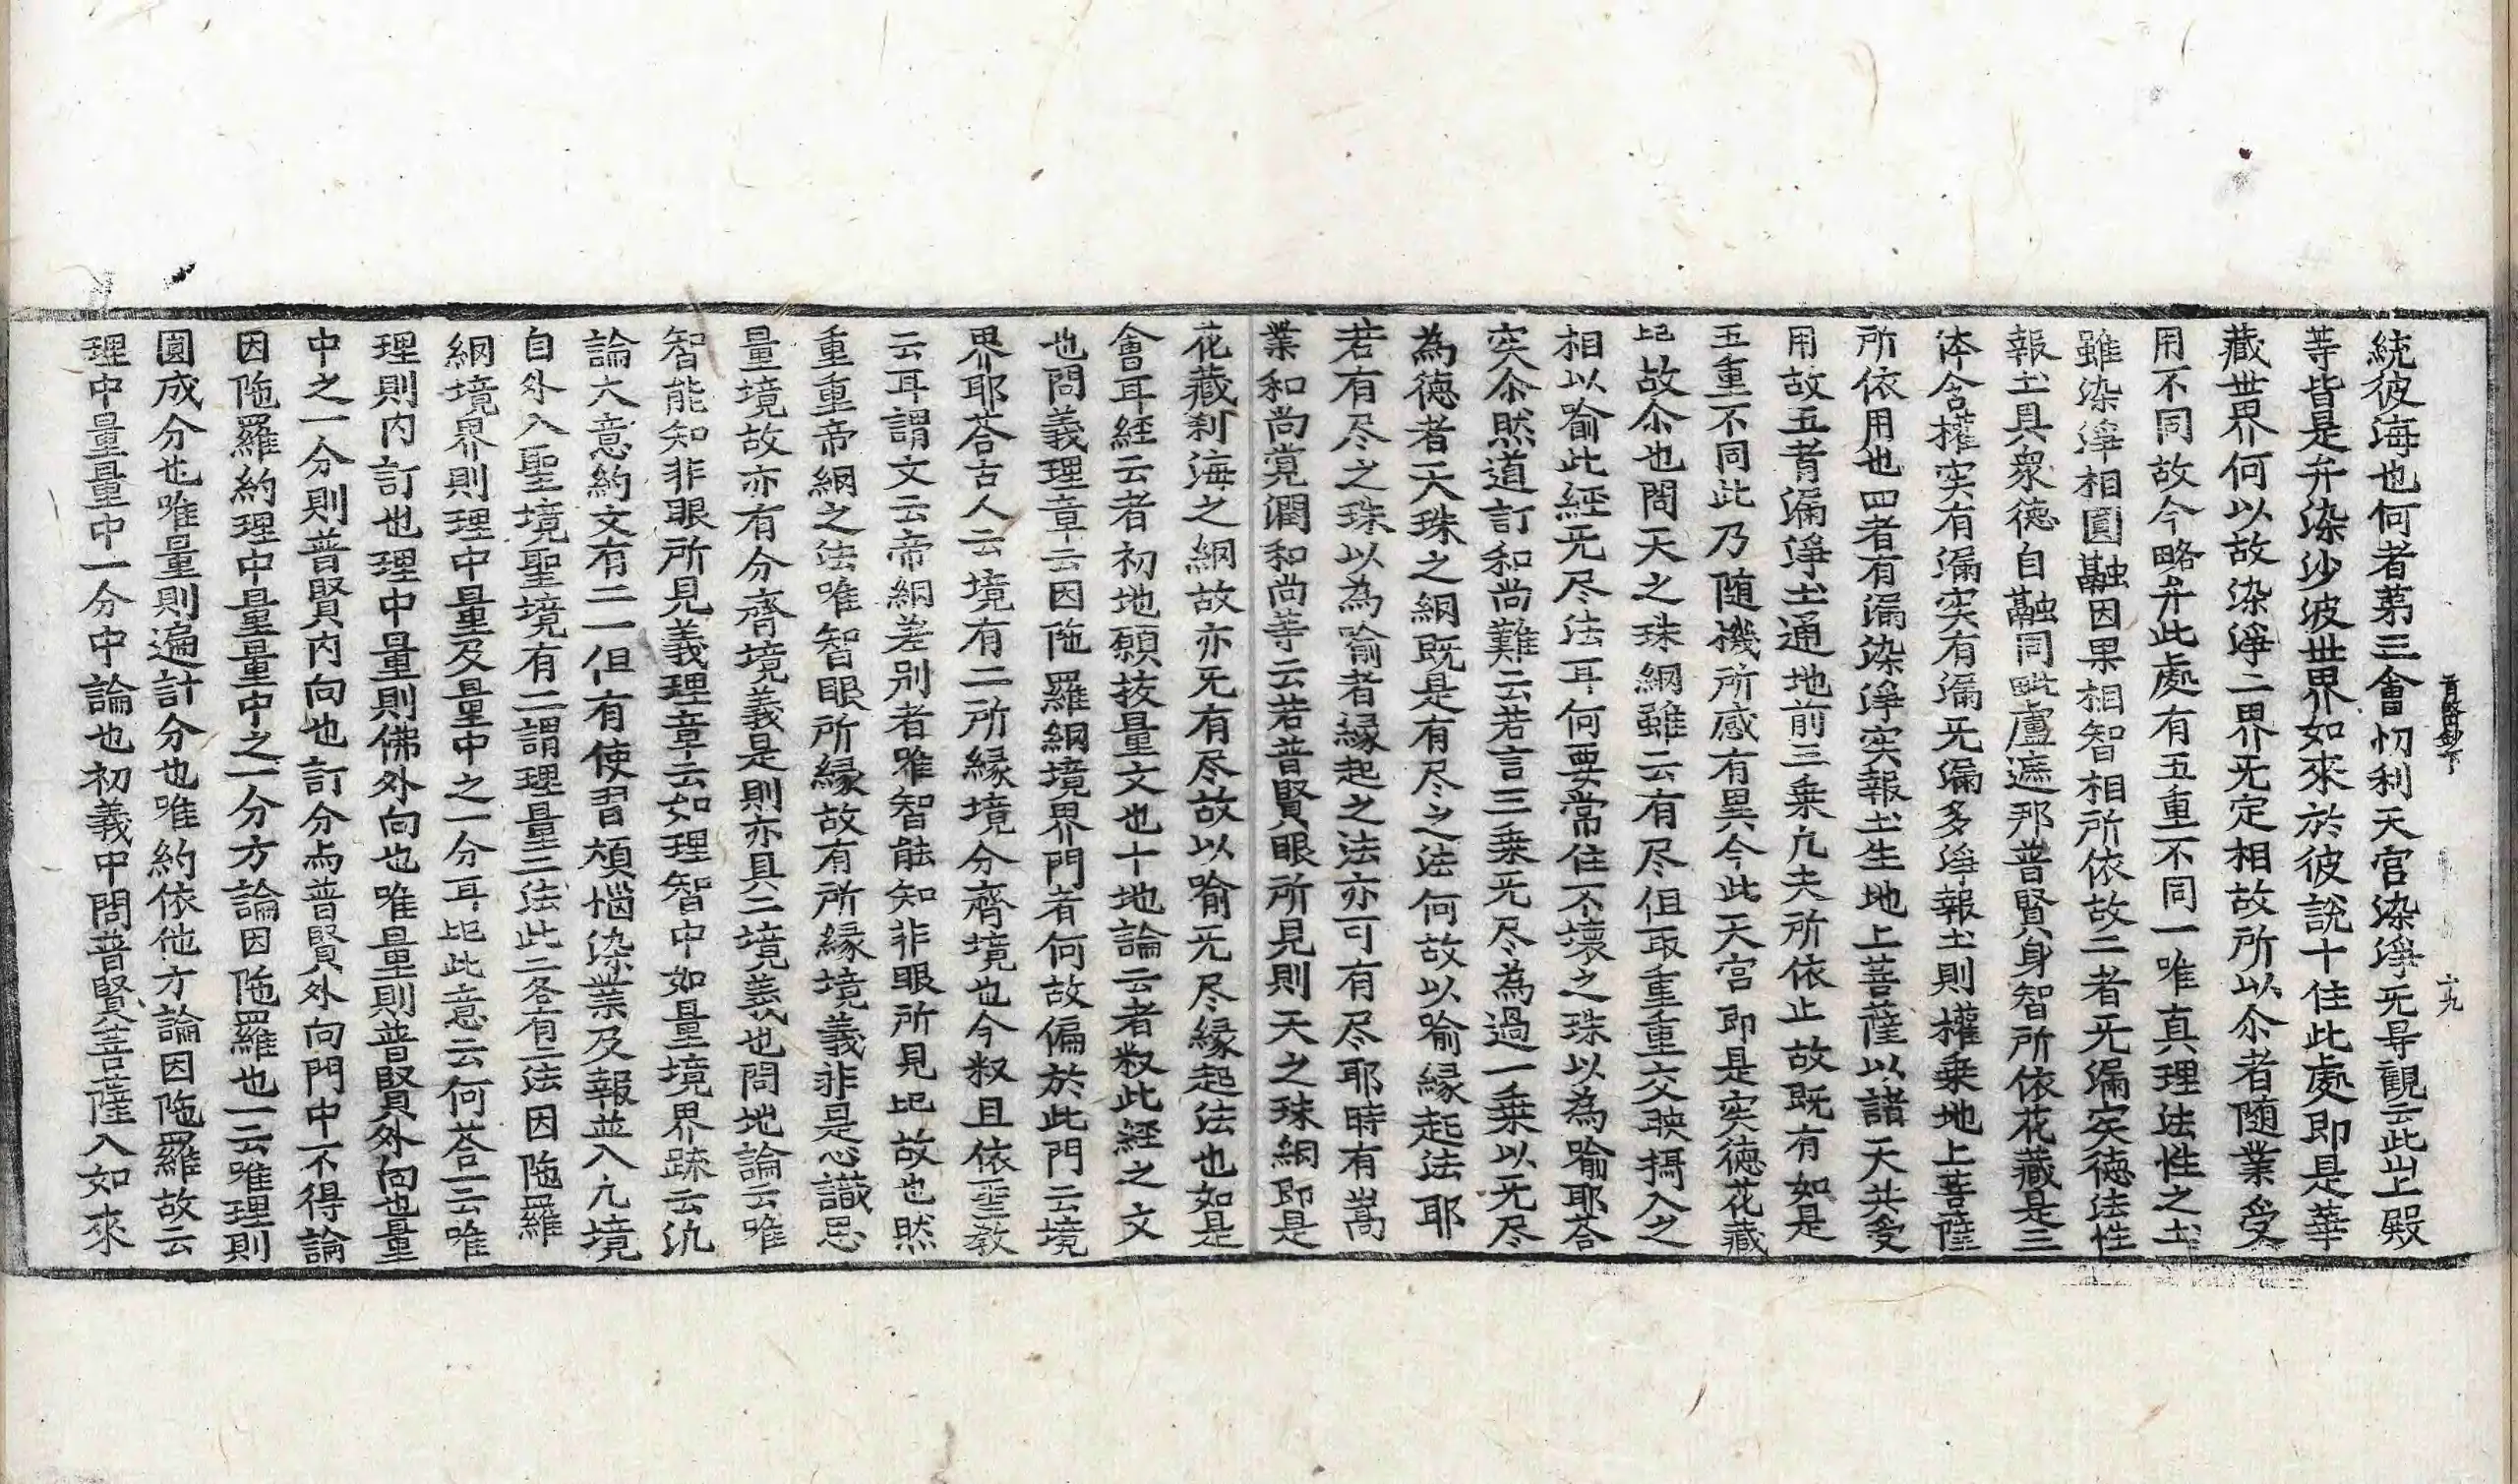 統彼海也何者苐三會忉利天宫染淨无㝵觀云此山上殿
䓁皆是弁染沙波世界如來於彼說十住此處即是華
藏世界何以故染淨二界无定相故所以尒者随業受
用不同故今略弁此處有五重不同一唯真理法性之土
雖染淨相圓融因果相智相所依故二者无漏实德法性
報土具衆德自融同毗盧遮那普賢身智所依花藏是三
体含權实有漏实有漏无漏多淨報土則權乗地上菩薩
所依用也四者有漏染淨实報土生地上菩薩以諸天共受
用故五者漏淨土通地前三乗凢夫所依止故既有如是
五重不同此乃随機所感有異今此天宫即是实德花藏
記故尒也問天之珠網雖云有尽但取重重交暎攝入之
相以喻此經无尽法耳何要常住不壞之珠以為喻耶荅
实尒然道訂和尚難云若言三乗无尽為過一乗以无尽
為德者天珠之網既是有尽之法何故以喻縁起法耶
若有尽之珠以為喻者縁起之法亦可有尽耶時有嵩
業和尚觉潤和尚等云若普賢眼所見則天之珠網即是
花藏刹海之網故亦无有尽故以喻无尽縁起法也如是
會耳経云者初地願挍量文也十地論云者釈此経之文
也問義理章云因陁羅網境界門者何故偏於此門云境
界耶荅古人云境有二所縁境分齊境也今釈且依聖教
云耳謂文云帝網差别者唯智能知非眼所見記故也然
重重帝網之法唯智眼所縁故有所縁境義非是心識思
量境故亦有分齊境義是則亦具二境義也問地論云唯
智能知非眼所見義理章云如理智中如量境界䟽云氿
論大意約文有二一但有使習煩惱染業及報並入凢境
自外入聖境聖境有二謂理量二法此二各有三法因陁羅
網境界則理中量及量中之一分耳記此意云何荅一云唯
理則内訂也理中量則佛外向也唯量則普賢外向也量
中之一分則普賢内向也訂分与普賢外向門中不得論
因陁羅約理中量量中之一分方論因陁羅也一云唯理則
圓成分也唯量則遍計分也唯約依他方論因陁羅故云
理中量量中一分中論也初義中問普賢菩薩入如來
六九